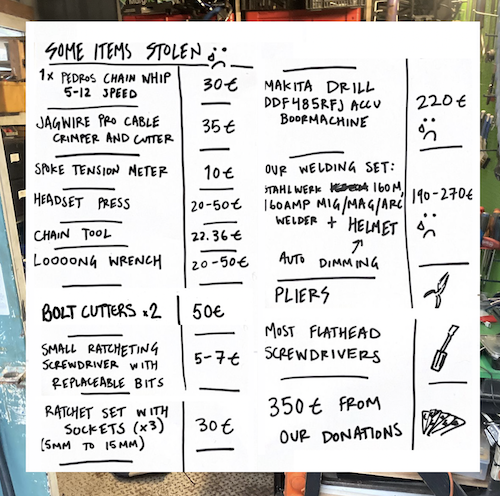 SOME ITEMS STOLEN
1x PEDROS CHAIN WHIP
5-12 SPEED
30€
JAGWIRE PRO CABLE
CRIMPER AND CUTTER
35€
SPOKE TENSION METER
10€
HEADSET PRESS
20-50€
CHAIN TOOL
22.36€
LOOOONG WRENCH
20-50€
BOLT CUTTERS x2
50€
SMALL RATCHETING
SCREWDRIVER WITH
REPLACEABLE BITS
5-7€
RATCHET SET WITH
SOCKETS (x3)
(5MM TO 15MM)
30€
MAKITA DRILL
DDF485RFJ ACCU
BOORMACHINE
220€
OUR WELDING SET:
STAHLWERK 160M,
160AMP MIG/MAG/ARC
WELDER + HELMET
AUTO DIMMING
190-270€
PLIERS
MOST FLATHEAD
SCREWDRIVERS
350€ FROM
OUR DONATIONS